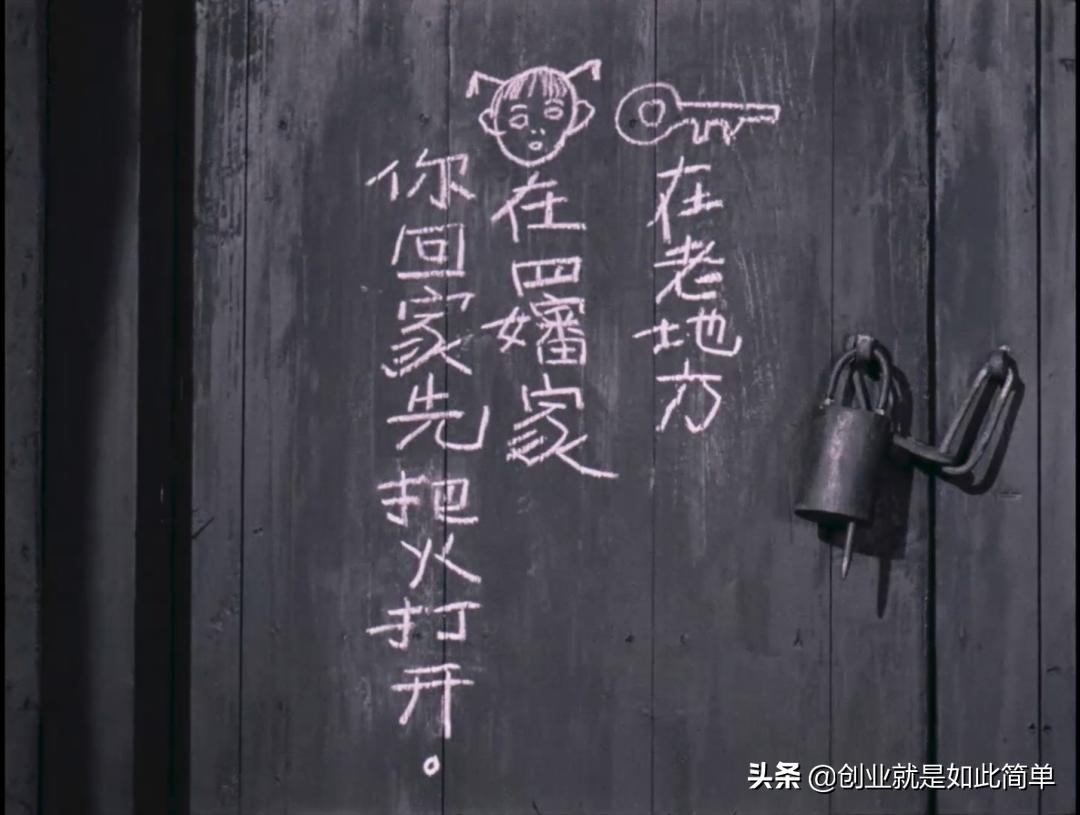 在老地方
在四嬸家
你回家先把火打开。
头条 @创业就是如此简单